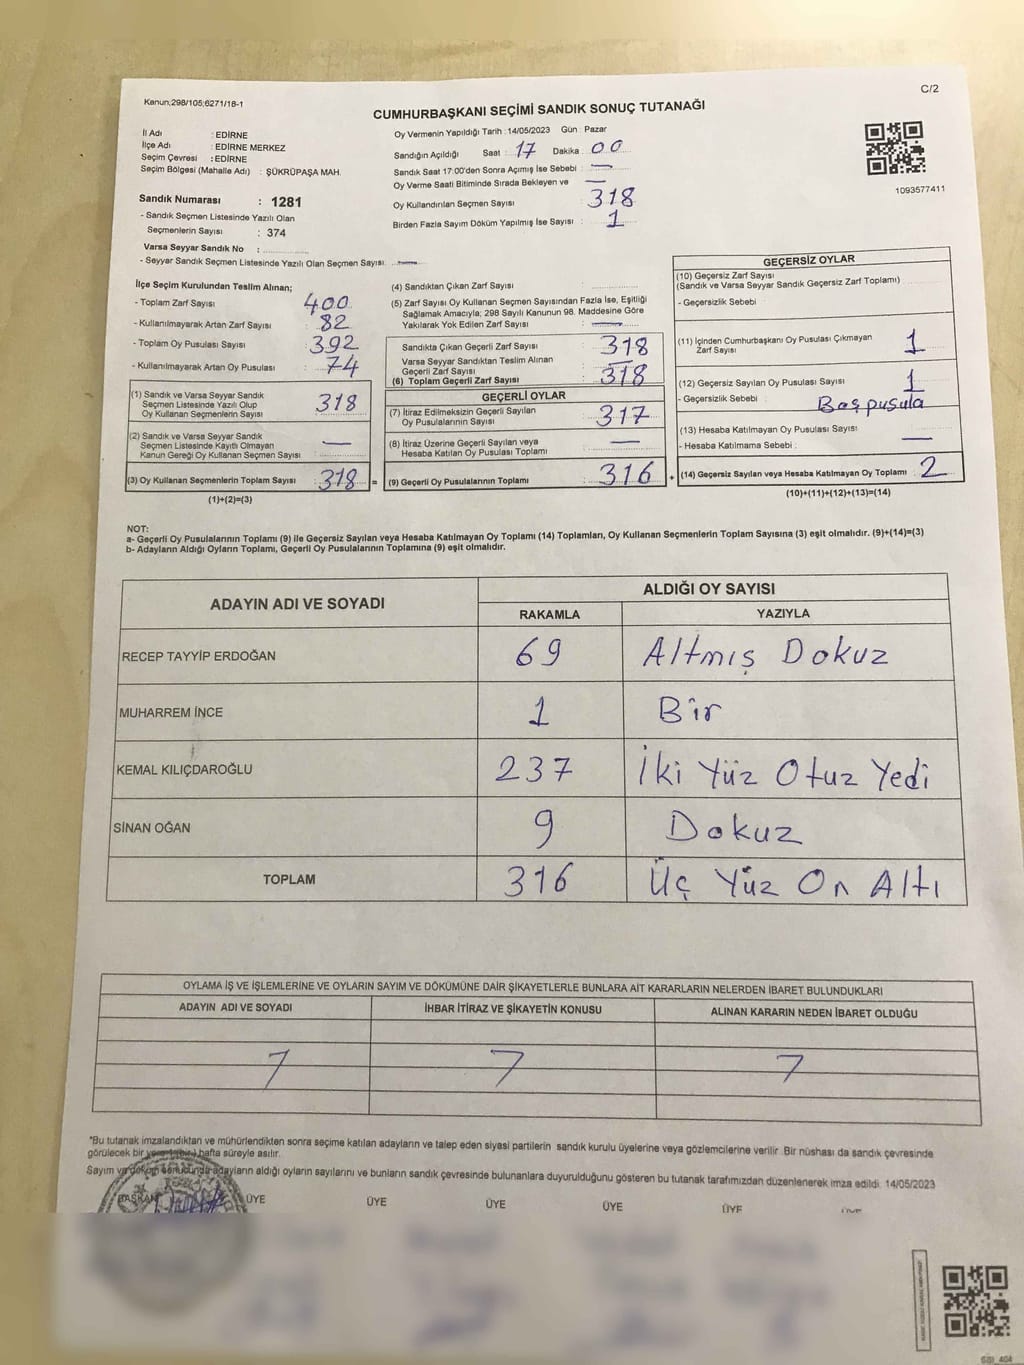 Kanun,298/105;6271/18-1
C/2
CUMHURBAŞKANI SEÇİMİ SANDIK SONUÇ TUTANAĞI
İl Adı : EDİRNE
İlçe Adı : EDİRNE MERKEZ
Seçim Çevresi : EDİRNE
Seçim Bölgesi (Mahalle Adı) : ŞÜKRÜPAŞA MAH.
Sandık Numarası : 1281
- Sandık Seçmen Listesinde Yazılı Olan
Seçmenlerin Sayısı : 374
Varsa Seyyar Sandık No :
- Seyyar Sandık Seçmen Listesinde Yazılı Olan Seçmen Sayısı: —
Oy Vermenin Yapıldığı Tarih : 14/05/2023 Gün : Pazar
Sandığın Açıldığı Saat : 17 Dakika : 00
Sandık Saat 17:00'den Sonra Açılmış İse Sebebi : —
Oy Verme Saati Bitiminde Sırada Bekleyen ve —
Oy Kullandırılan Seçmen Sayısı : 318
Birden Fazla Sayım Döküm Yapılmış İse Sayısı : 1
1093577411
İlçe Seçim Kurulundan Teslim Alınan;
- Toplam Zarf Sayısı : 400
- Kullanılmayarak Artan Zarf Sayısı : 82
- Toplam Oy Pusulası Sayısı : 392
- Kullanılmayarak Artan Oy Pusulası : 74
(1) Sandık ve Varsa Seyyar Sandık
Seçmen Listesinde Yazılı Olup
Oy Kullanan Seçmenlerin Sayısı : 318
(2) Sandık ve Varsa Seyyar Sandık
Seçmen Listesinde Kayıtlı Olmayan
Kanun Gereği Oy Kullanan Seçmen Sayısı : —
(3) Oy Kullanan Seçmenlerin Toplam Sayısı : 318 =
(1)+(2)=(3)
(4) Sandıktan Çıkan Zarf Sayısı :
(5) Zarf Sayısı Oy Kullanan Seçmen Sayısından Fazla İse, Eşitliği
Sağlamak Amacıyla; 298 Sayılı Kanunun 98. Maddesine Göre
Yakılarak Yok Edilen Zarf Sayısı : —
Sandıkta Çıkan Geçerli Zarf Sayısı : 318
Varsa Seyyar Sandıktan Teslim Alınan
Geçerli Zarf Sayısı : —
(6) Toplam Geçerli Zarf Sayısı : 318
GEÇERLİ OYLAR
(7) İtiraz Edilmeksizin Geçerli Sayılan
Oy Pusulalarının Sayısı : 317
(8) İtiraz Üzerine Geçerli Sayılan veya
Hesaba Katılan Oy Pusulası Toplamı : —
(9) Geçerli Oy Pusulalarının Toplamı : 316 +
GEÇERSİZ OYLAR
(10) Geçersiz Zarf Sayısı
(Sandık ve Varsa Seyyar Sandık Geçersiz Zarf Toplamı)
- Geçersizlik Sebebi :
(11) İçinden Cumhurbaşkanı Oy Pusulası Çıkmayan
Zarf Sayısı 1
(12) Geçersiz Sayılan Oy Pusulası Sayısı : 1
- Geçersizlik Sebebi : Boş pusula
(13) Hesaba Katılmayan Oy Pusulası Sayısı :
- Hesaba Katılmama Sebebi : —
(14) Geçersiz Sayılan veya Hesaba Katılmayan Oy Toplamı : 2
(10)+(11)+(12)+(13)=(14)
NOT:
a- Geçerli Oy Pusulalarının Toplamı (9) ile Geçersiz Sayılan veya Hesaba Katılmayan Oy Toplamı (14) Toplamları, Oy Kullanan Seçmenlerin Toplam Sayısına (3) eşit olmalıdır. (9)+(14)=(3)
b- Adayların Aldığı Oyların Toplamı, Geçerli Oy Pusulalarının Toplamına (9) eşit olmalıdır.
ADAYIN ADI VE SOYADI
ALDIĞI OY SAYISI
RAKAMLA YAZIYLA
RECEP TAYYİP ERDOĞAN 69 Altmış Dokuz
MUHARREM İNCE 1 Bir
KEMAL KILIÇDAROĞLU 237 İki Yüz Otuz Yedi
SİNAN OĞAN 9 Dokuz
TOPLAM 316 Üç Yüz On Altı
OYLAMA İŞ VE İŞLEMLERİNE VE OYLARIN SAYIM VE DÖKÜMÜNE DAİR ŞİKAYETLERLE BUNLARA AİT KARARLARIN NELERDEN İBARET BULUNDUKLARI
ADAYIN ADI VE SOYADI İHBAR İTİRAZ VE ŞİKAYETİN KONUSU ALINAN KARARIN NEDEN İBARET OLDUĞU
7 7 7
*Bu tutanak imzalandıktan ve mühürlendikten sonra seçime katılan adayların ve talep eden siyasi partilerin sandık kurulu üyelerine veya gözlemcilerine verilir. Bir nüshası da sandık çevresinde
görülecek bir yere 1 (bir) hafta süreyle asılır.
Sayım ve döküm sonucunda adayların aldığı oyların sayılarını ve bunların sandık çevresinde bulunanlara duyurulduğunu gösteren bu tutanak tarafımızdan düzenlenerek imza edildi. 14/05/2023
BAŞKAN ÜYE ÜYE ÜYE ÜYE ÜYE